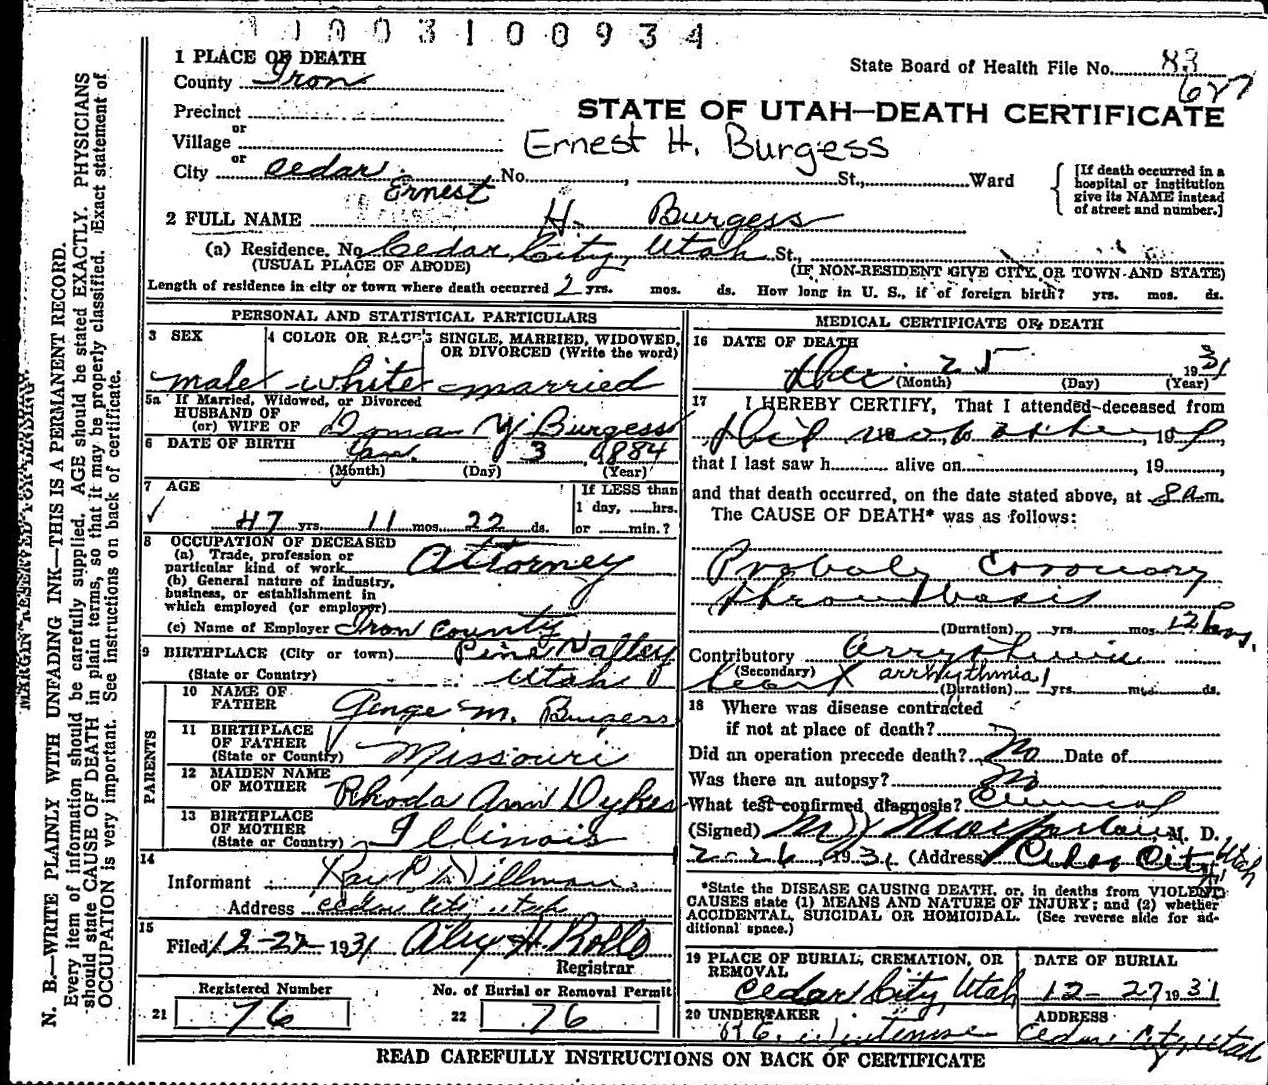 1003100934
1 PLACE OF DEATH
County Iron
State Board of Health File No. 83
627
Precinct
STATE OF UTAH—DEATH CERTIFICATE
or
Village
Ernest H. Burgess
or
City Cedar No. , St., Ward
[If death occurred in a
hospital or institution
give its NAME instead
of street and number.]
Ernest
2 FULL NAME H. Burgess
(a) Residence. No. Cedar City, Utah St.,
(USUAL PLACE OF ABODE) (IF NON-RESIDENT GIVE CITY OR TOWN AND STATE)
Length of residence in city or town where death occurred 2 yrs. mos. ds. How long in U. S., if of foreign birth? yrs. mos. ds.
PERSONAL AND STATISTICAL PARTICULARS
3 SEX
male
4 COLOR OR RACE
white
5 SINGLE, MARRIED, WIDOWED,
OR DIVORCED (Write the word)
married
5a If Married, Widowed, or Divorced
HUSBAND OF
(or) WIFE OF Burgess
6 DATE OF BIRTH Jan. 3 1884
(Month) (Day) (Year)
7 AGE
47 yrs. 11 mos. 22 ds.
If LESS than
1 day, hrs.
or min.?
8 OCCUPATION OF DECEASED
(a) Trade, profession or
particular kind of work Attorney
(b) General nature of industry,
business, or establishment in
which employed (or employer)
(c) Name of Employer Iron County
9 BIRTHPLACE (City or town) Pine Valley
(State or Country) Utah
PARENTS
10 NAME OF
FATHER George M. Burgess
11 BIRTHPLACE
OF FATHER
(State or Country) Missouri
12 MAIDEN NAME
OF MOTHER Rhoda Ann Dykes
13 BIRTHPLACE
OF MOTHER
(State or Country) Illinois
14
Informant
Address Cedar City Utah
15
Filed 12-27- 1931 H. Rollo
Registrar
Registered Number
21 76
No. of Burial or Removal Permit
22 76
MEDICAL CERTIFICATE OF DEATH
16 DATE OF DEATH
Dec 25 1931
(Month) (Day) (Year)
17 I HEREBY CERTIFY, That I attended deceased from
Did not , 19 ,
that I last saw h alive on , 19 ,
and that death occurred, on the date stated above, at 8 a.m.
The CAUSE OF DEATH* was as follows:
Probaly Coronary
thrombosis
(Duration) yrs. mos. 12 hrs.
Contributory
(Secondary) arrhythmia
(Duration) yrs. mos. ds.
18 Where was disease contracted
if not at place of death?
Did an operation precede death? No Date of
Was there an autopsy? No
What test confirmed diagnosis? Clinical
(Signed) M. D.
1931 (Address) Cedar City Utah
*State the DISEASE CAUSING DEATH, or, in deaths from VIOLENT
CAUSES state (1) MEANS AND NATURE OF INJURY; and (2) whether
ACCIDENTAL, SUICIDAL OR HOMICIDAL. (See reverse side for ad-
ditional space.)
19 PLACE OF BURIAL, CREMATION, OR
REMOVAL
Cedar City, Utah
DATE OF BURIAL
12- 27 1931
20 UNDERTAKER
ADDRESS
Cedar City, Utah
READ CAREFULLY INSTRUCTIONS ON BACK OF CERTIFICATE
MARGIN RESERVED FOR BINDING
N. B.—WRITE PLAINLY WITH UNFADING INK—THIS IS A PERMANENT RECORD.
Every item of information should be carefully supplied. AGE should be stated EXACTLY. PHYSICIANS
should state CAUSE OF DEATH in plain terms, so that it may be properly classified. Exact statement of
OCCUPATION is very important. See instructions on back of certificate.